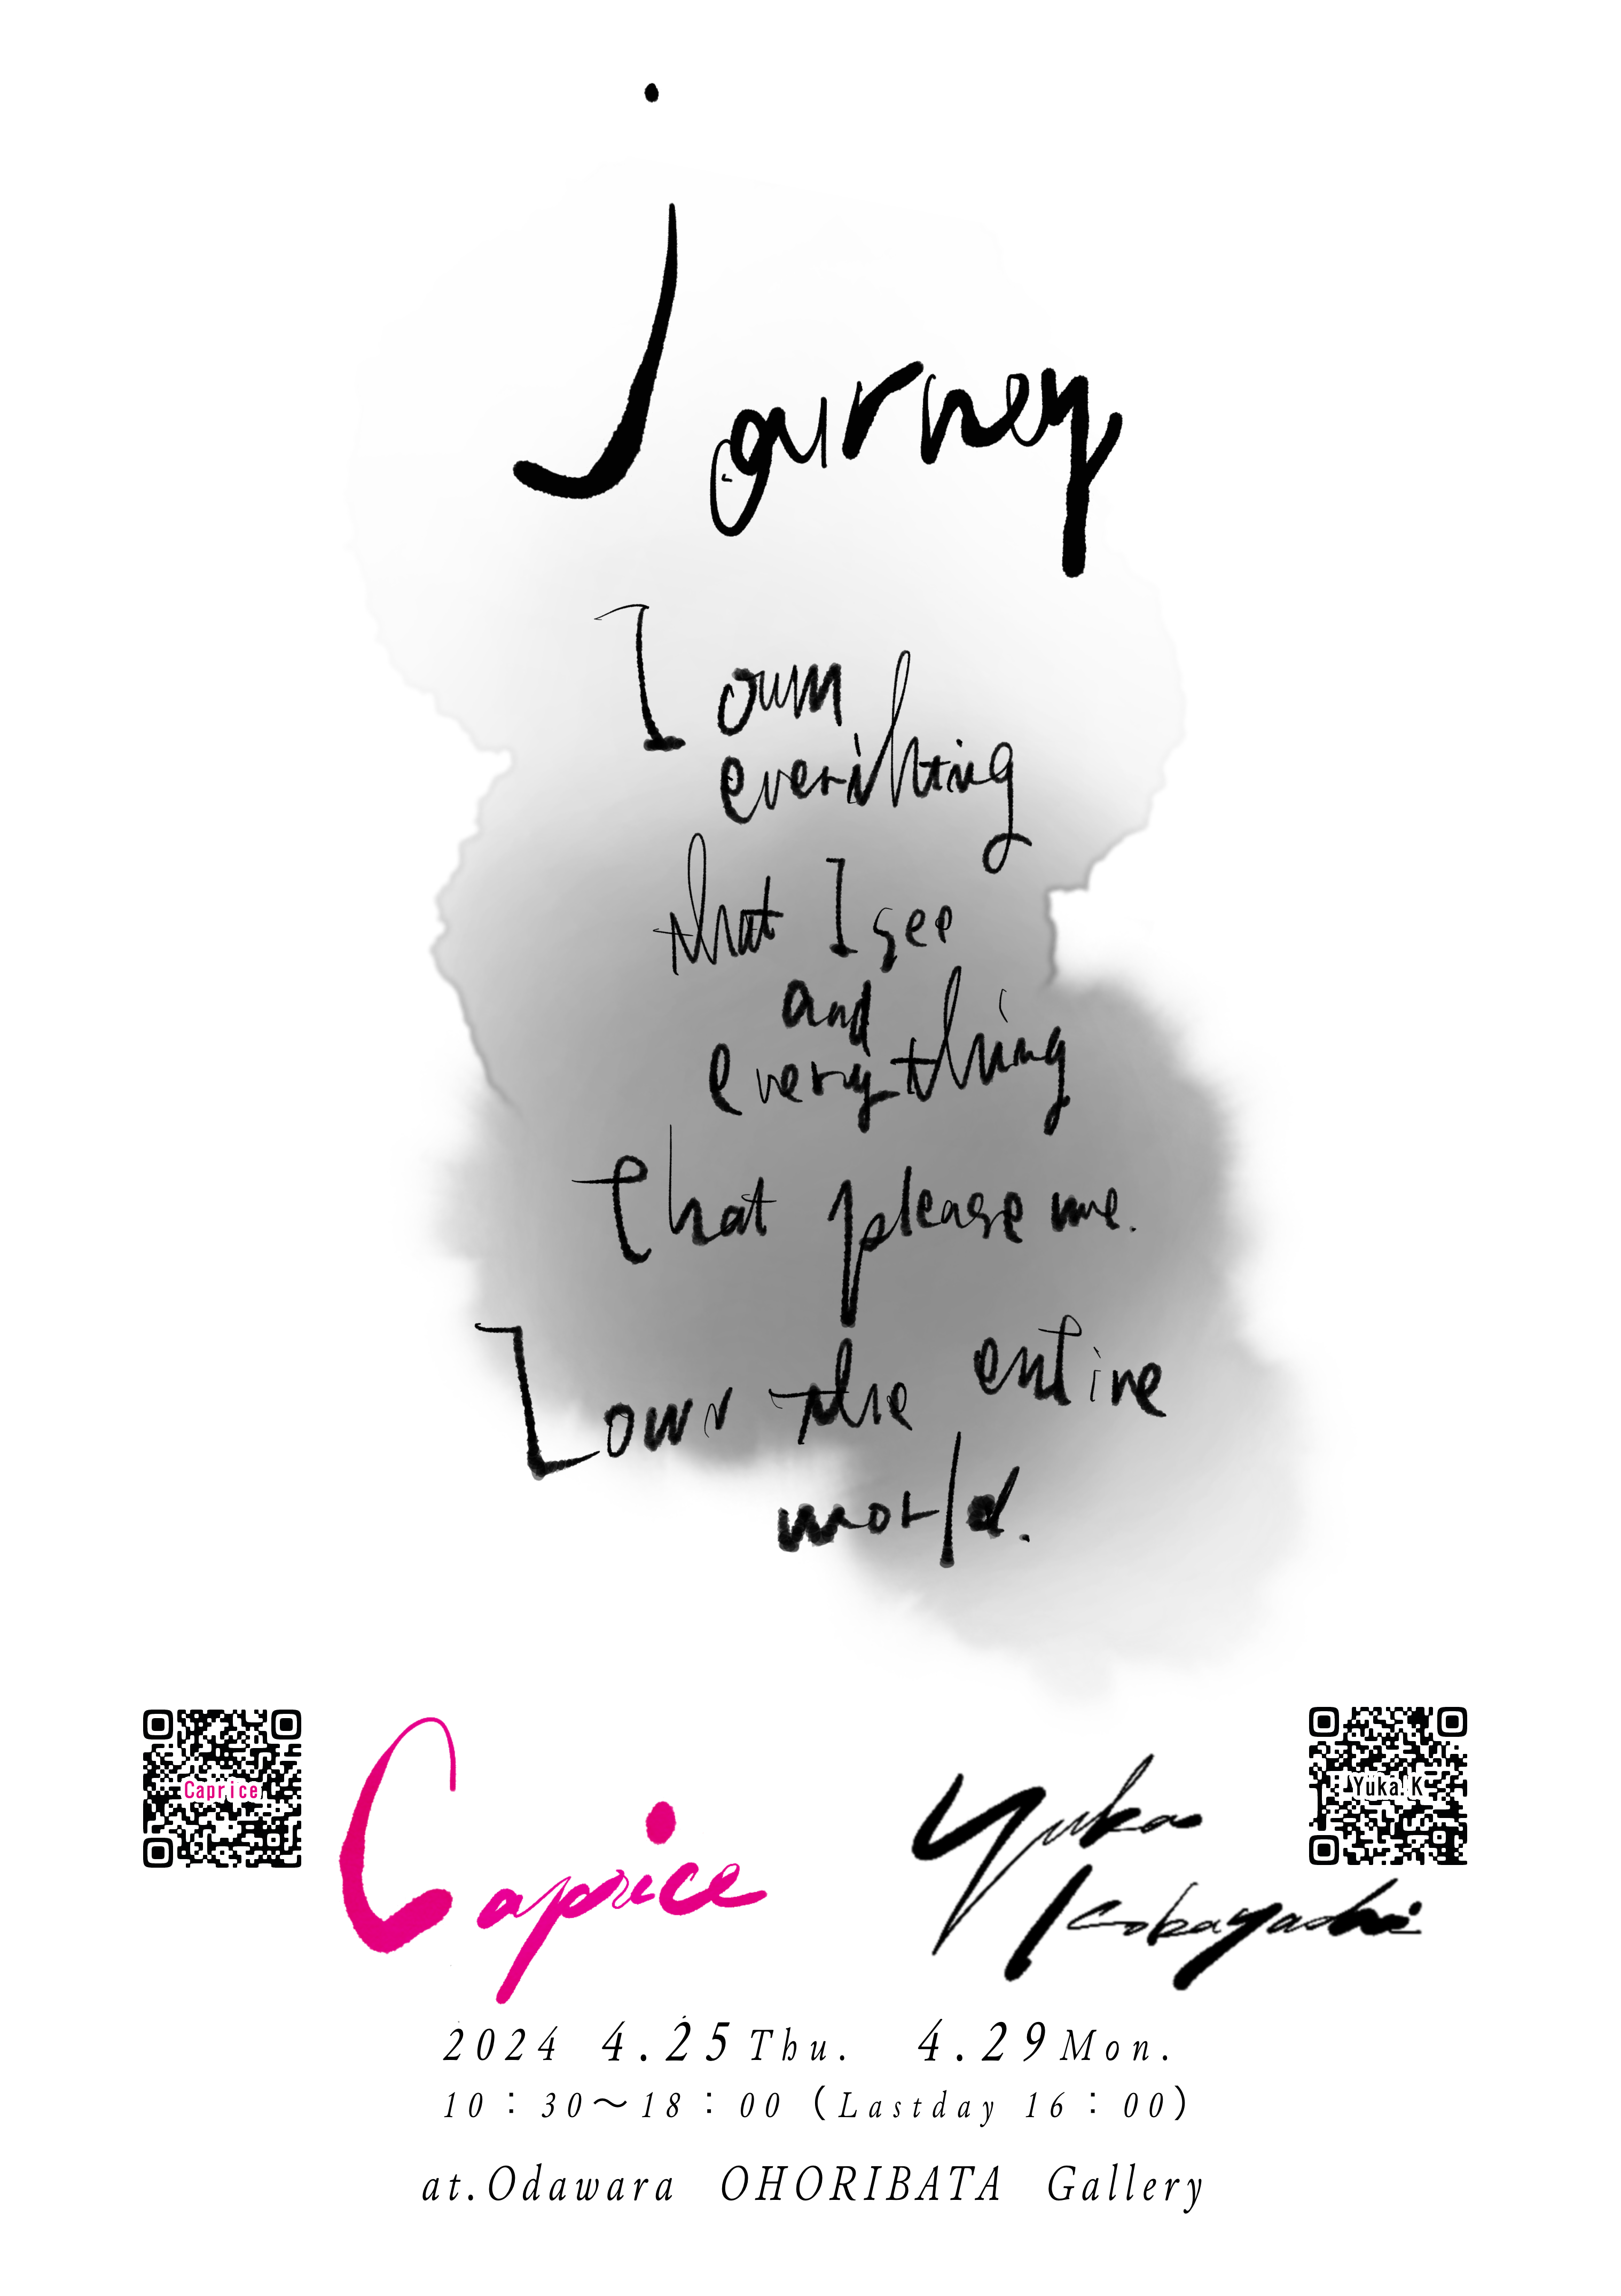 Journey
I own
everithing
that I see
and
everything
that please me.
I own the entire
world.
Caprice
Caprice
Yuka
Kobayashi
Yuka.K
2024 4.25Thu. 4.29Mon.
10：30～18：00（Lastday 16：00）
at.Odawara OHORIBATA Gallery